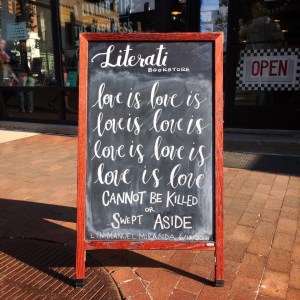 Literati
BOOKSTORE
OPEN
love is love is
love is love is
love is love is
love is love
CANNOT BE KILLED
OR
SWEPT ASIDE
LIN-MANUEL MIRANDA, 6/12/2016